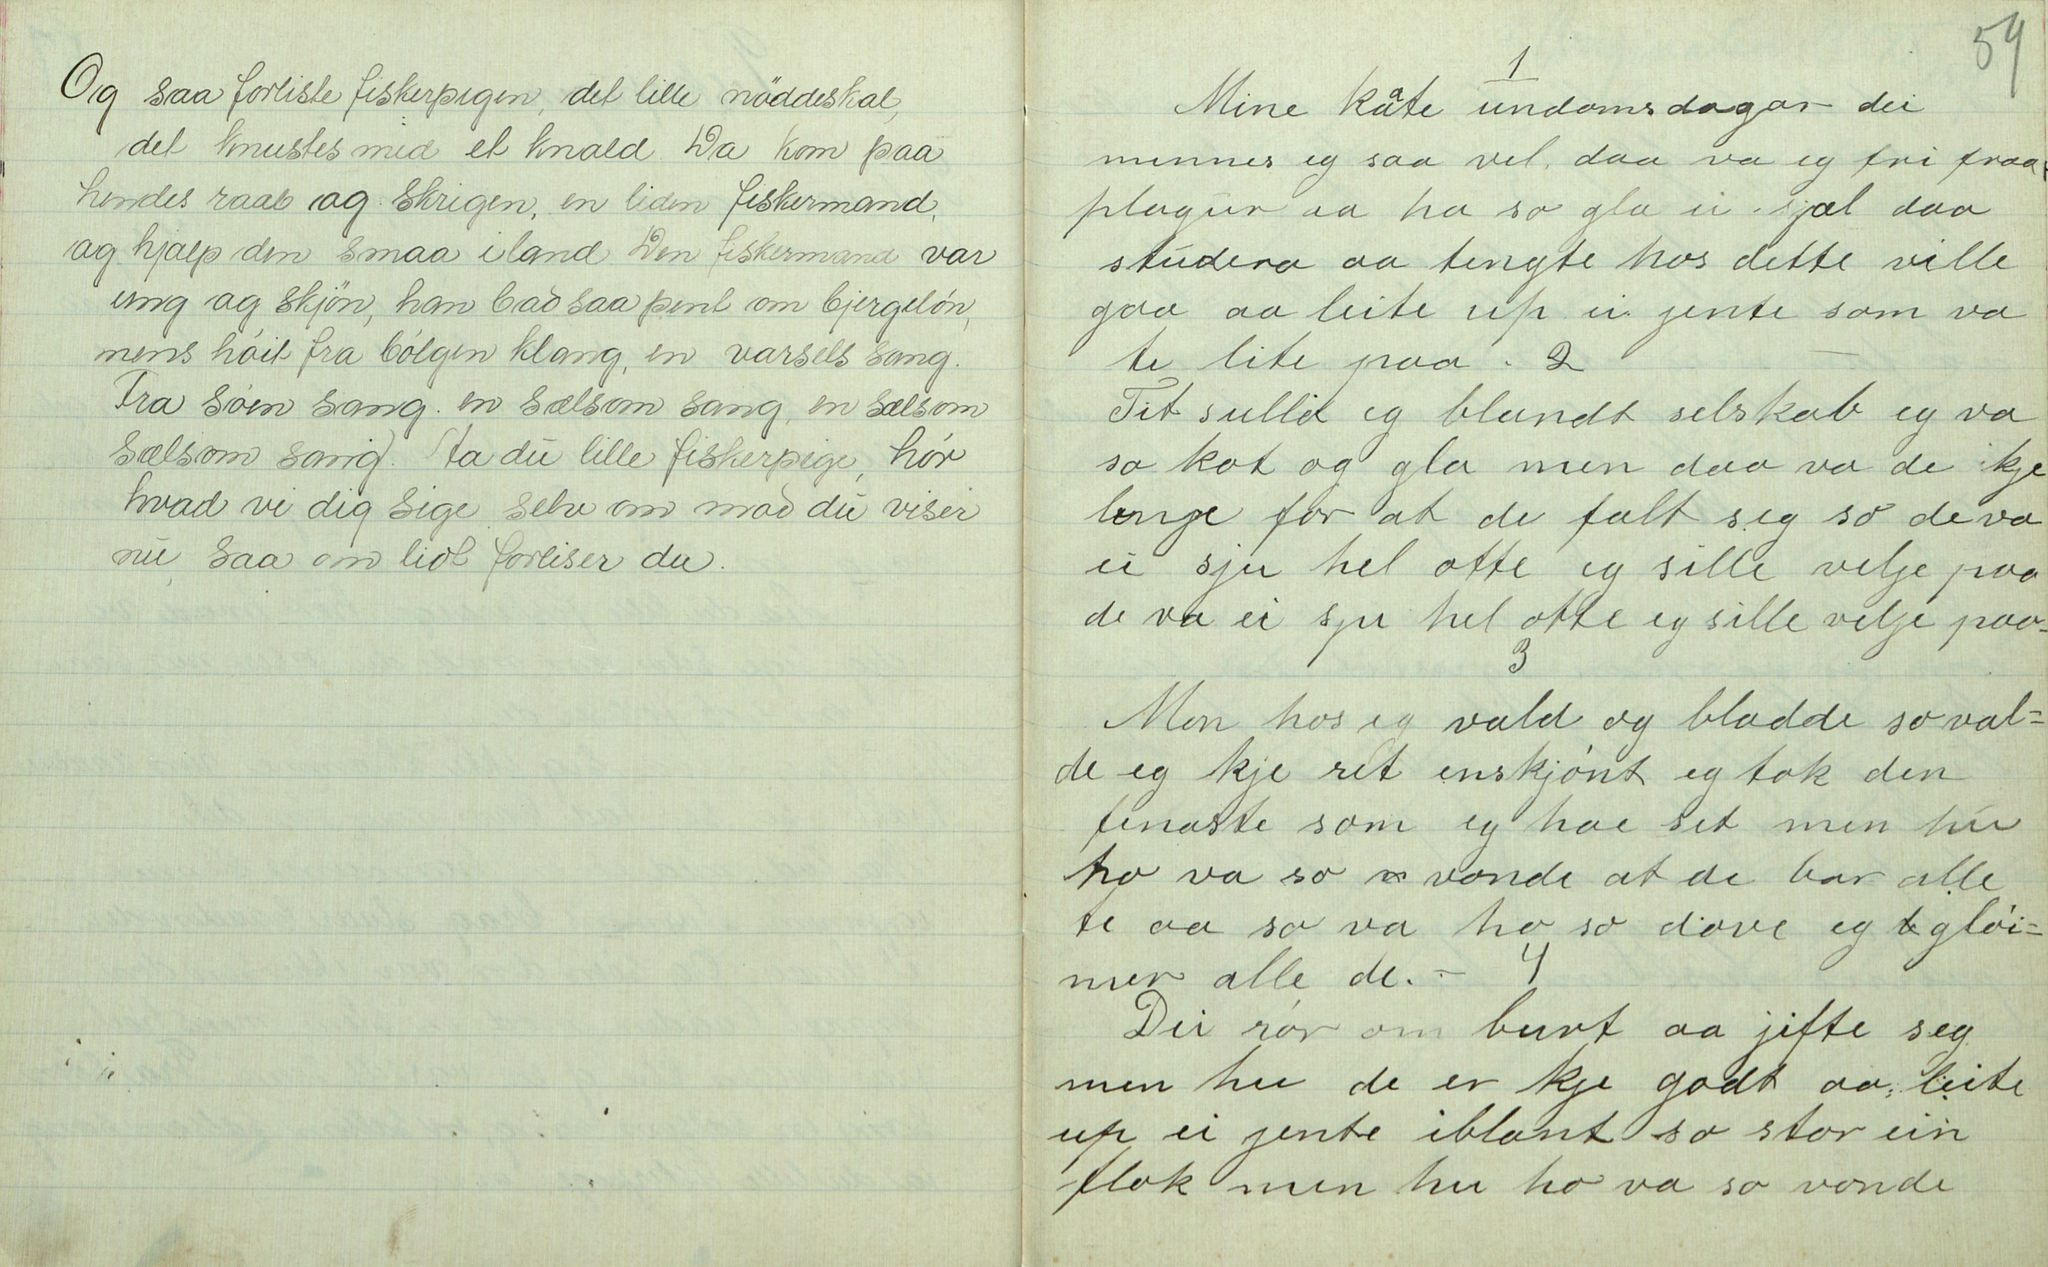 Og saa forliste fiskerpigen, det lille nöddeskal,
det knustes med et knald. Da kom paa
hendes raab og skrigen, en liden fiskermand,
og hjalp den smaa i land Den fiskermand var
ung og skjön, han bad saa pent om bjergelön,
mens höit fra bölgen klang, en varsels sang.
Fra söen sang. en sælsom sang, en sælsom
sælsom sang. Ja du lille fiskerpige, hör
hvad vi dig sige selv om mod du viser
nu, saa om lidt forliser du.
54
1
Mine kåte undomsdagar dei
minnes eg saa vel. daa va eg fri fraa
plagur aa ha so gla ei sjæl daa
studera aa tengte hos dette ville
gaa aa leite up ei jente som va
te lite paa. 2
Tit sulla eg blandt selskab eg va
so kat og gla men daa va de ikje
lenje för at de falt seg so de va
ei sju hel otte eg sille velje paa
de va ei sju hel otte eg sille velje paa-
3
Men hos eg vald og bladde so val=
de eg kje ret enskjönt eg tok den
finaste som eg hae set men hu
ho va so vonde at de bar alle
te aa so va ho so dove eg glöi=
mer alle de. - 4
Dei rör om burt aa jifte seg
men hu de er kje godt aa leite
up ei jente iblant so stor ein
flok men hu ho va so vonde